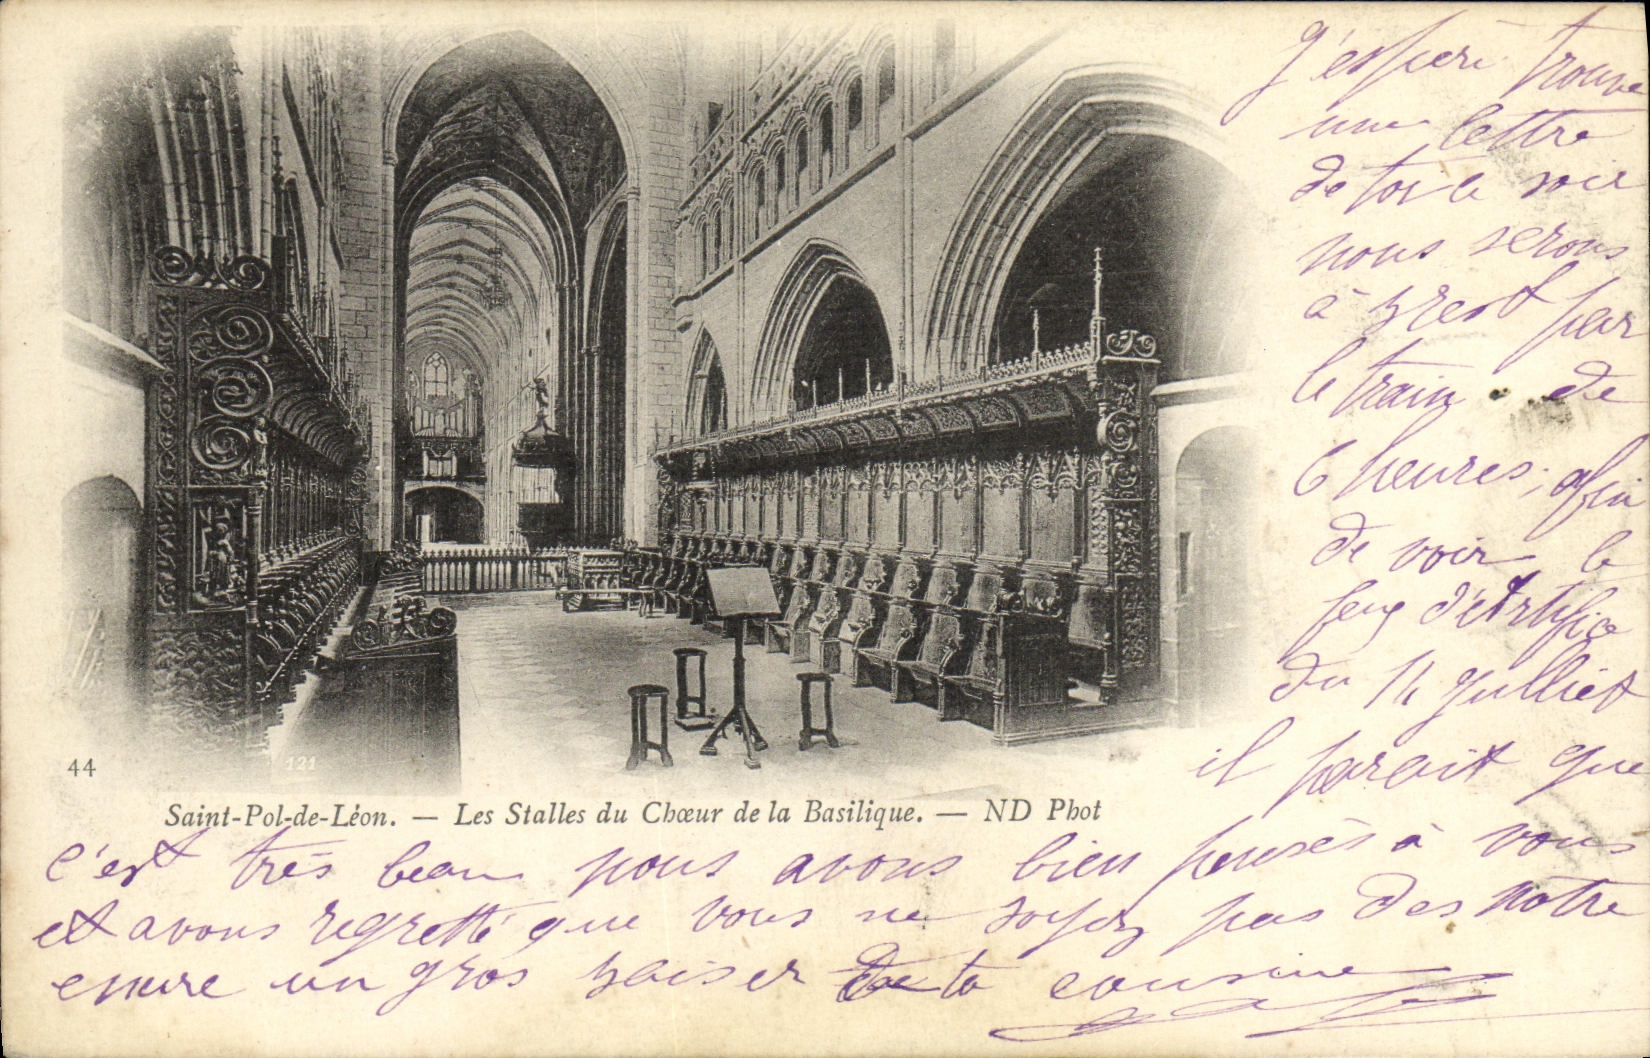 J'esperi trouve
une lettre
de toi ce soir
nous serons
à brest par
le train de
6 heures, afin
de voir le
feux d'étrtifice
du 14 Julliet
il parait que
44
121
Saint-Pol-de-Léon. — Les Stalles du Chœur de la Basilique. — ND Phot
c'est très beau nous avons bien pensès à vous
et avons regretté que vous ne soyez pas des notre
encore un gros baiser de ta cousine